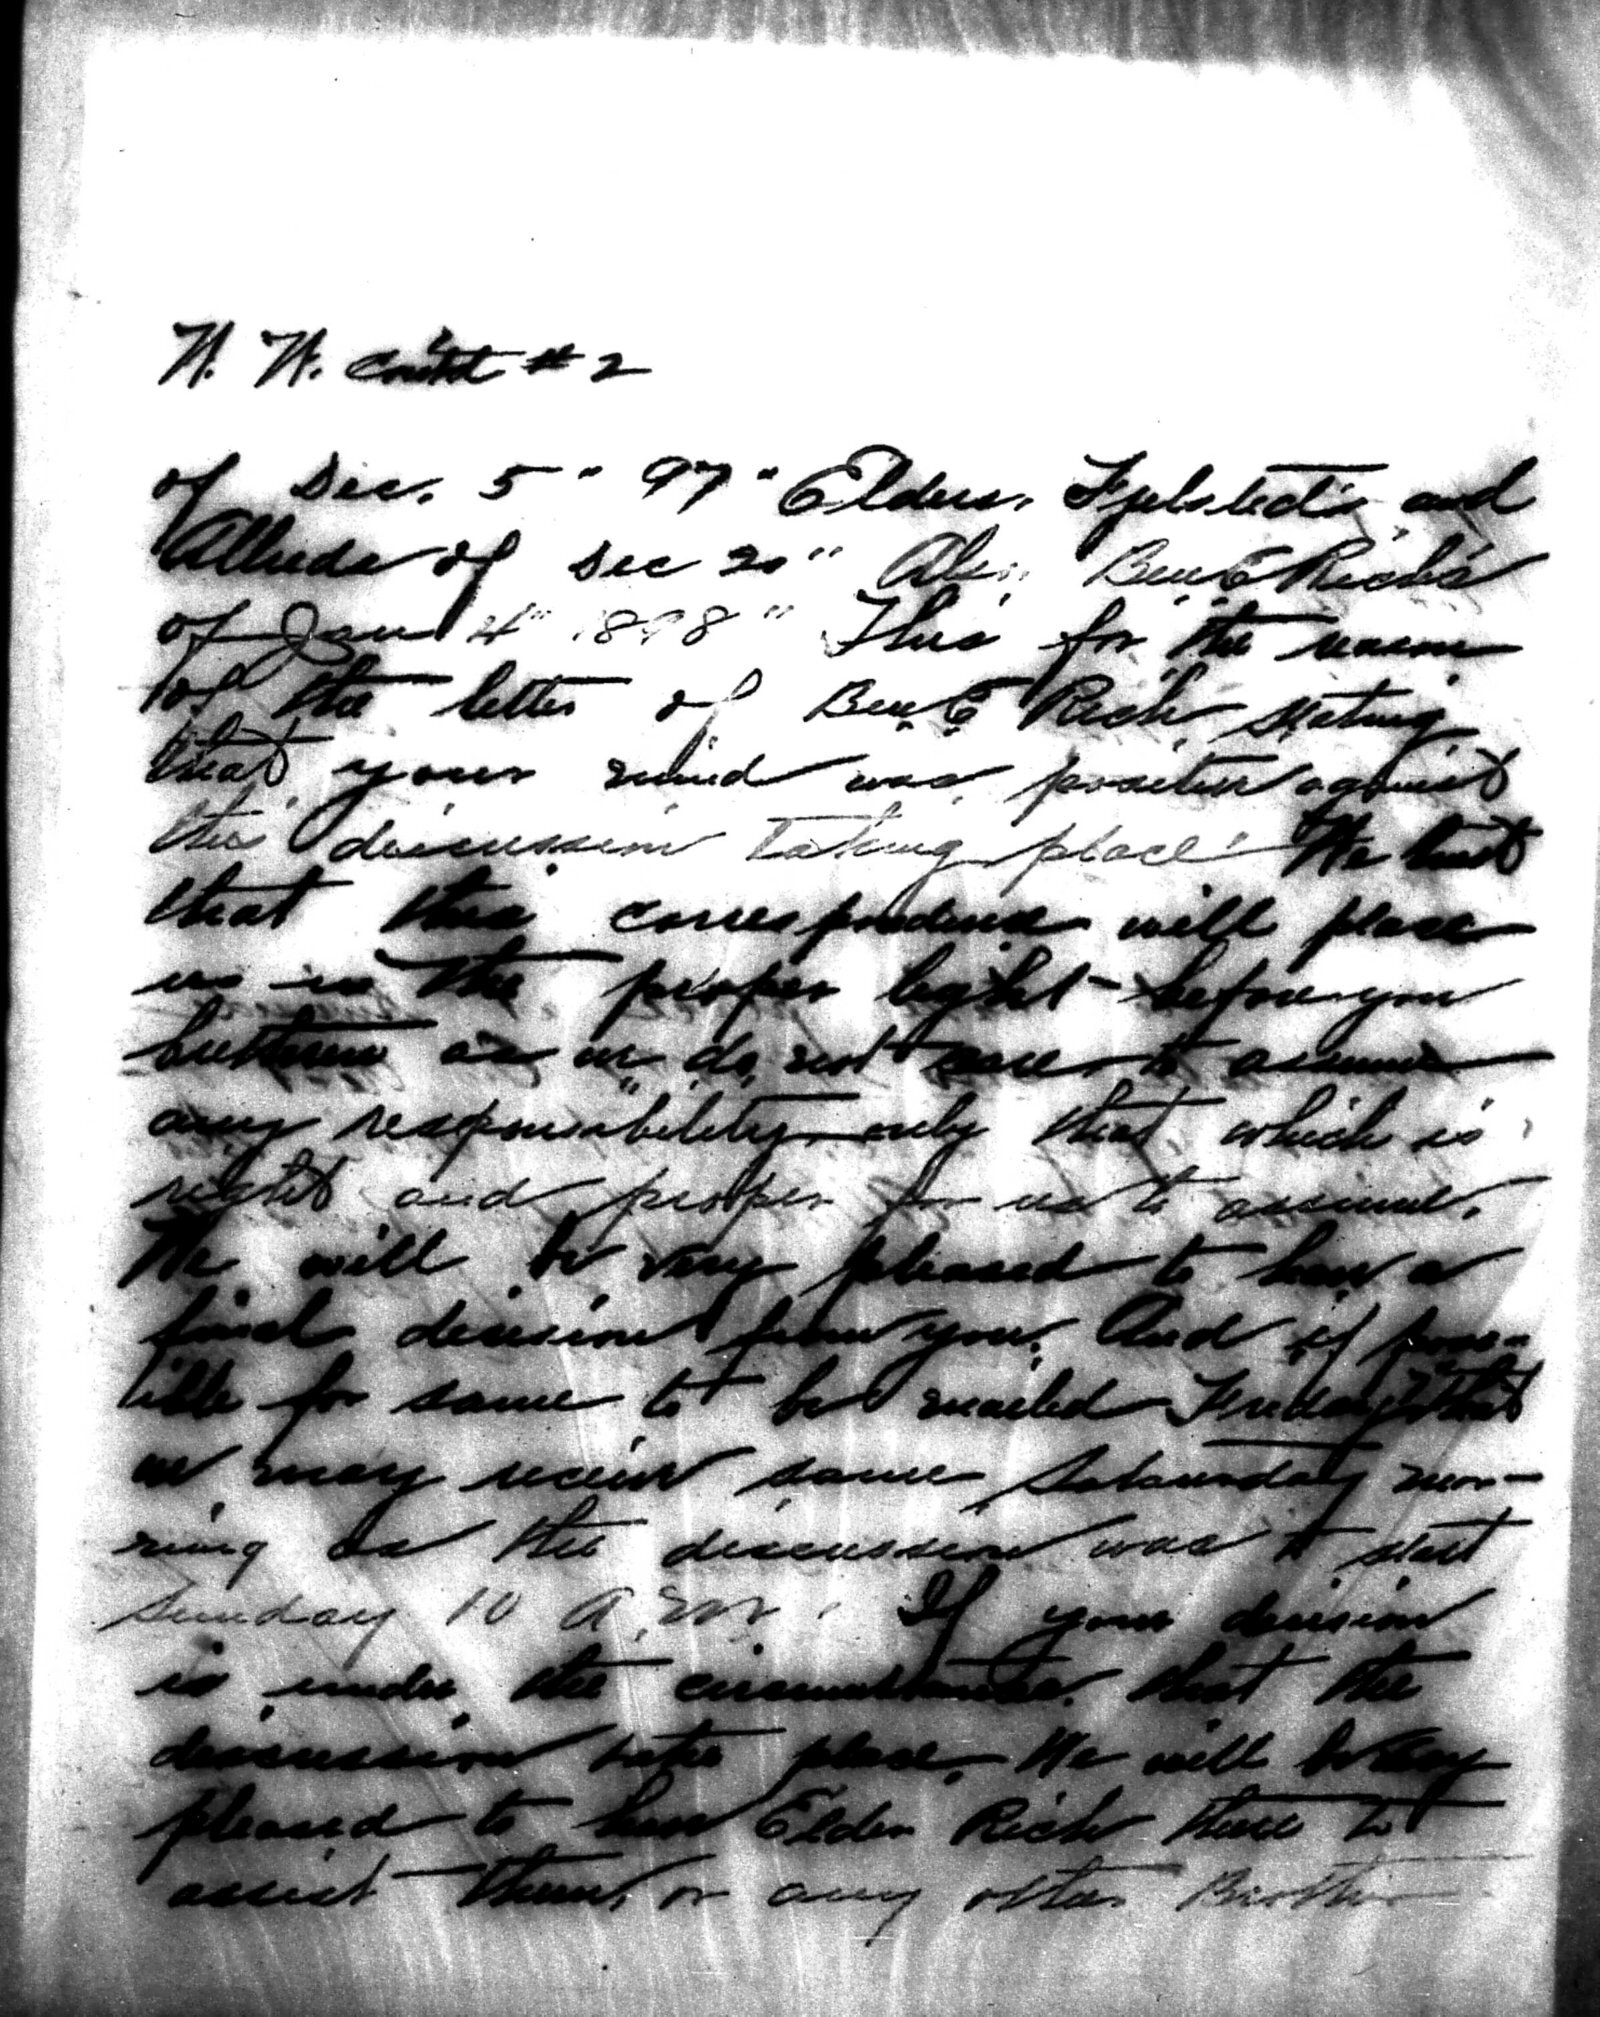 W. W. Cont'd # 2
of Dec. 5" 97" Elders, Fjelsted's and
Allreds of Dec 20" Also Ben E Rich's
of Jan 4" 1898" This for the reason
of the letter of Ben E Rich stating
that your mind was positive against
this discussion taking place. We trust
that this correspondence will place
us in the proper light before you
brethren as we do not care to assume
any responsibility only that which is
right and proper for us to assume.
We will be very pleased to have a
final decision from you. And if poss-
ible for same to be mailed Friday that
we may receive same Saturday mor-
ning as the discussion was to start
Sunday 10 A.M. If your decision
is under the circumstances that the
discussion take place. We will be very
pleased to have Elder Rich there to
assist them, or any other Brother